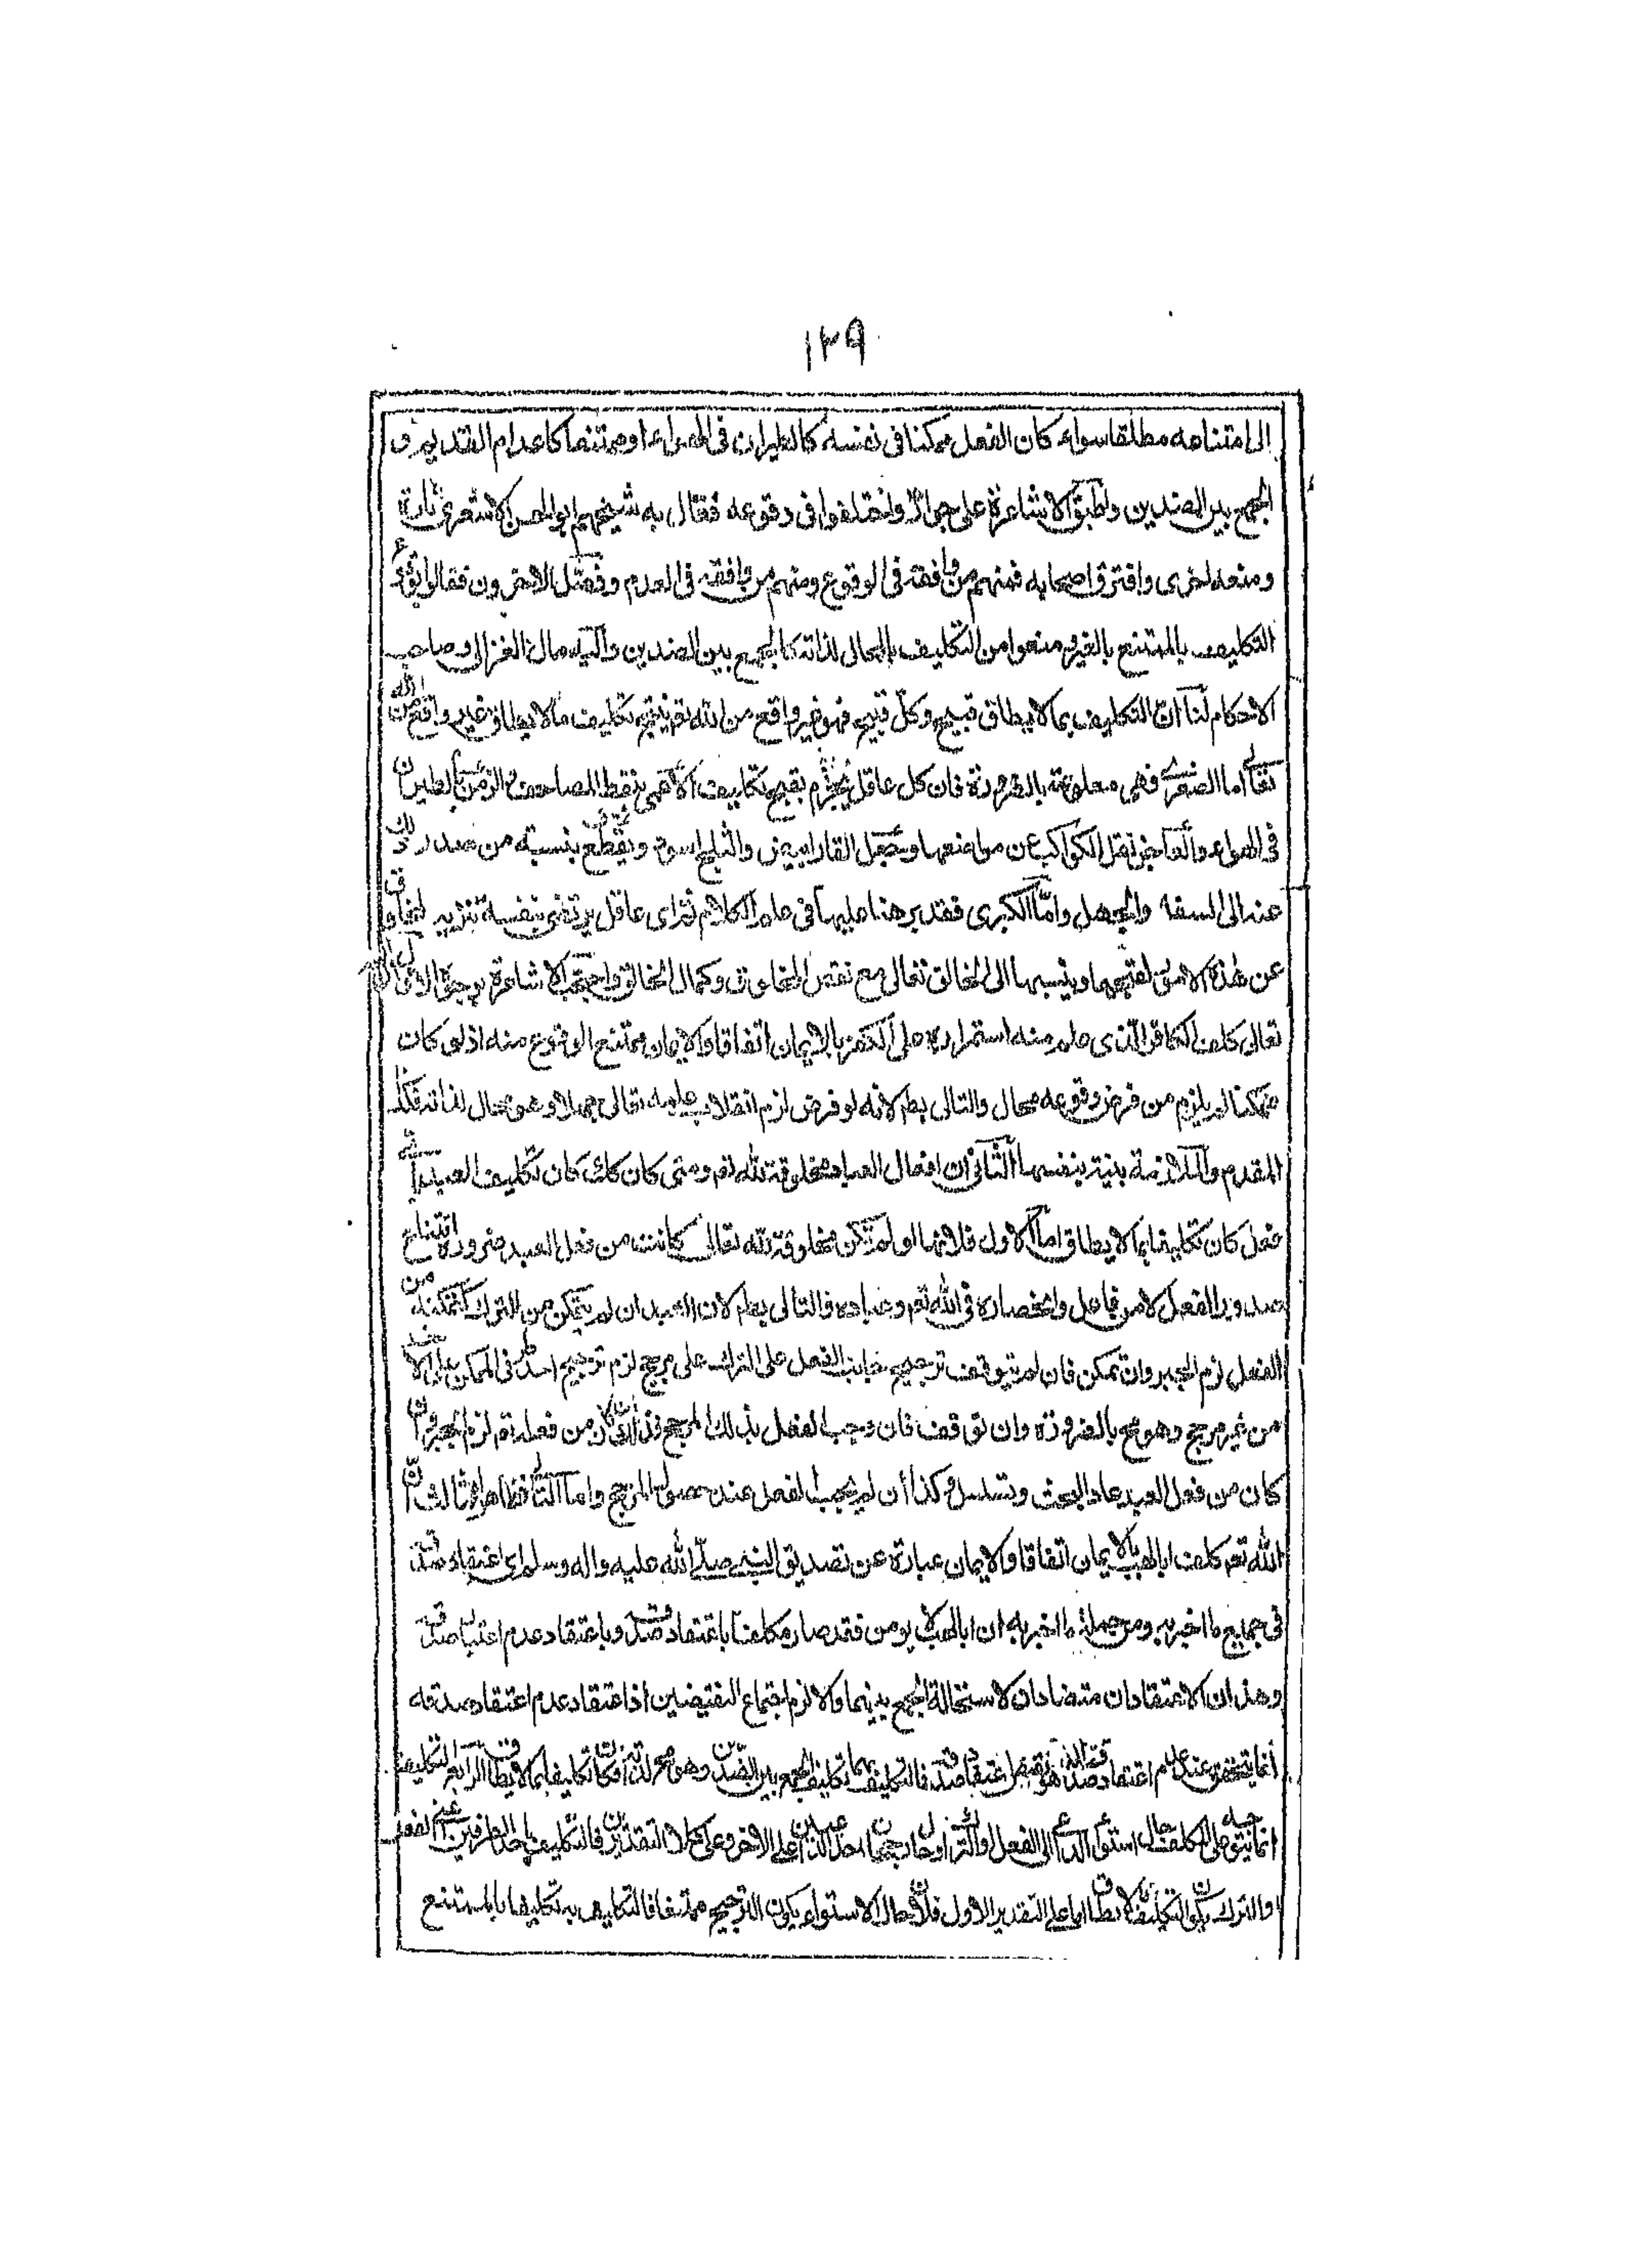 ١٣٩
الى امتناعه مطلقا سواء كان الفعل ممكنا فى نفسه كالطيران فى الهواء او ممتنعا كاعدام القديم و
الجمع بين الضدين واطبق الاشاعرة على جوازه واختلفوا فى وقوعه فقال به شيخهم ابو الحسن الاشعرى تارة
ومنعه اخرى وافترق اصحابه فمنهم من وافقه فى الوقوع ومنهم من وافقه فى العدم وفصّل الاخرون فقالوا بوقوع
التكليف بالممتنع بالغير ومنعوا من التكليف بالمحال لذاته كالجمع بين الضدين واليه مال الغزالى وصاحب
الاحكام لنا ان التكليف بما لا يطاق قبيح وكل قبيح فهو غير واقع من الله تعم ينتج تكليف ما لا يطاق غير واقع من الله
تعالى اما الصغرى فهى معلومة بالضرورة فان كل عاقل يجزم بقبح تكليف الاعمى بنقط المصاحف والزمن بالطيران
فى الهواء والعاجز نقل الكواكب عن مواضعها وجعل القار ابيض والثلج اسود ويقطع بنسبته من صدر ذلك
عنه الى السفه والجهل واما الكبرى فقد برهنا عليها فى علم الكلام ثم اى عاقل يرتضى بنفسه تنزيه المخلوق
عن هذه الامور لقبحها وينسبها الى الخالق تعالى مع نقص المخلوق وكمال الخالق واحتجت الاشاعرة بوجوه الاول ان الله
تعالى كلف الكافر الذى علم منه استمراره على الكفر بالايمان اتفاقا والايمان ممتنع الوقوع منه اذ لو كان
ممكنا لم يلزم من فرض وقوعه محال والتالى بطم لانه لو فرض لزم انقلاب علمه تعالى جهلا وهو محال لذاته فكذا
المقدم والملازمة بينة بنفسها الثانى ان افعال العباد مخلوقة لله تعم ومتى كان كك كان تكليف العبد باى
فعل كان تكليفا بما لا يطاق اما الاول فلانها لو لم تكن مخلوقة لله تعالى كانت من فعل العبد ضرورة امتناع
صدور الفعل لا من فاعل وانحصاره فى الله تعم وعباده فالتالى بطم لان العبد ان لم يتمكن من الترك حال تمكنه من
الفعل لزم الجبر وان تمكن فان لم يتوقف ترجيح جانب الفعل على الترك على مرجح لزم ترجيح احد طرفى الممكن على الاخر
من غير مرجح وهو مح بالضرورة وان توقف فان وجب الفعل بذلك المرجح فذلك ان كان من فعله تم لزم الجبر وان
كان من فعل العبد عاد البحث وتسلسل وكذا ان لم يجب الفعل عند حصول المرجح واما الثانى فظاهر الثالث ان
الله تعم كلف ابا لهب بالايمان اتفاقا والايمان عبارة عن تصديق النبى صلى الله عليه واله وسلم اى اعتقاد صدقه
فى جميع ما اخبر به ومن جملة ما اخبر به ان ابا لهب لا يومن فقد صار مكلفا باعتقاد صدقه وباعتقاد عدم اعتقاد صدقه
وهذان الاعتقادان متضادان لاستحالة الجمع بينهما والا لزم اجتماع النقيضين اذ اعتقاد عدم اعتقاد صدقه
انما يتحقق عند عدم اعتقاد صدقه الذى هو نقيض اعتقاد صدقه فالتكليف بهما تكليف بالجمع بين الضدين وهو مح لذاته فكان تكليفا بما لا يطاق الرابع التكليف
انما يتوجه على المكلف حال استواء الداعى الى الفعل والترك او حال رجحان احد الداعيين على الاخر وعلى كلا التقديرين فالتكليف باحد الطرفين اعنى الفعل
او الترك يكون التكليف بما لا يطاق اما على التقدير الاول فلان حال الاستواء يكون الترجيح ممتنعا فالتكليف به تكليفا بالممتنع